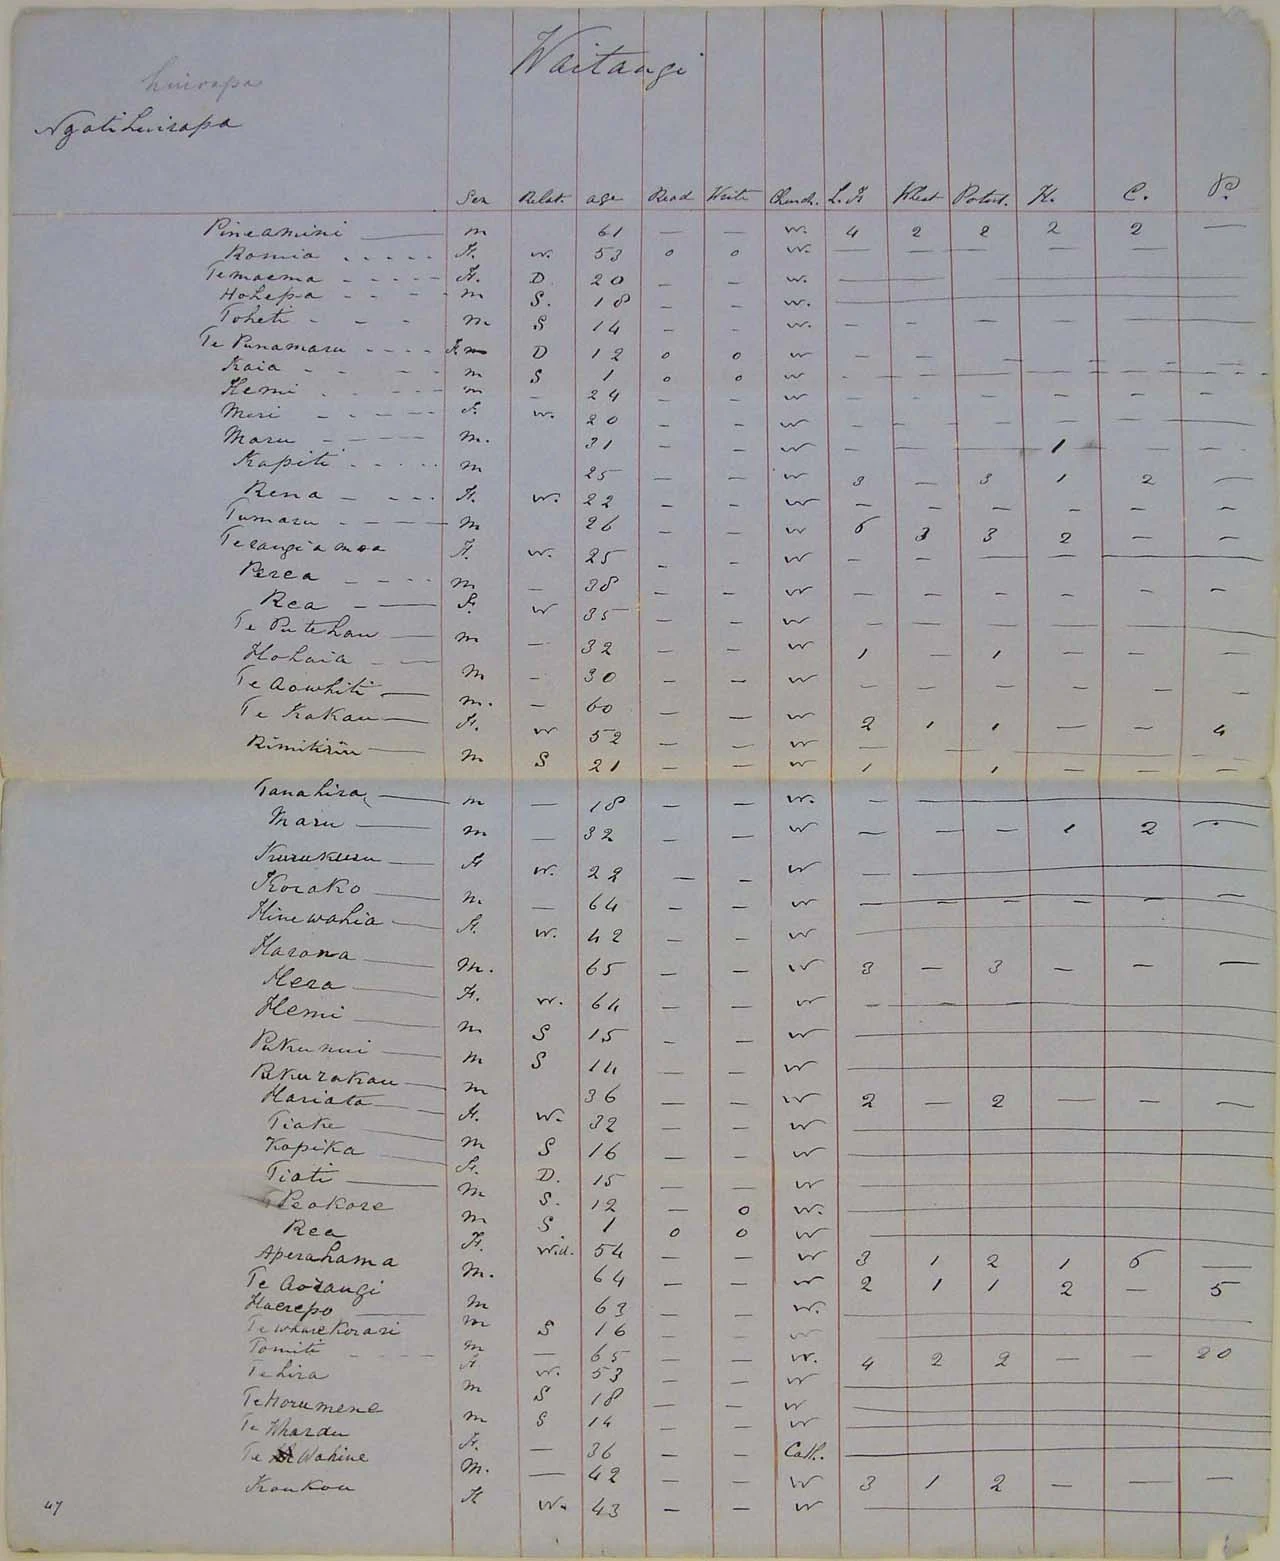 Waitangi
huirapa
Ngatihuirapa
Sex Relat. age Read Write Church. L. H Wheat Potat. H. C. P.
Pineamini — m 61 — — w. 4 2 2 2 2 —
Romia F. w. 53 o o w. — — — — —
Temaema F. D. 20 — — w. —
Hohepa m S. 18 — — w. —
Toheti m S 14 — — w. — — — — —
Te Punamaru F D 12 o o w — — — — — —
Kaia m S 1 o o w — — — — — —
Hemi m — 24 — — w — — — — — —
Meri F. w. 20 — — w — — — — — —
Maru m. 31 — — w — — — 1 — —
Kapiti m 25 — — w 3 — 3 1 2 —
Rena F. w. 22 — — w — — — — — —
Tumaru m 26 — — w 6 3 3 2 — —
Terangiamoa F. w. 25 — — w — — — — —
Perea m — 38 — — w — — — — — —
Rea F. w 35 — — w — — — — —
Te Putehau m — 32 — — w 1 — 1 — — —
Hohaia m — 30 — — w — — — — — —
Te Aowhiti m. — 60 — — w 2 1 1 — — 4
Te Kakau F. w 52 — — w — —
Rimitiriu m S 21 — — w 1 1 — — —
Tanahira m — 18 — — w. — —
Maru m — 32 — — w — — — 1 2 —
Kurukuru F w. 22 — — w — —
Korako m — 64 — — w — — — — — —
Hinewahia F. w. 42 — — w —
Harona m. 65 — — w 3 — 3 — — —
Hera F. w. 64 — — w — — —
Hemi m S 15 — — w —
Pukunui m S 14 — — w —
Pukurakau m 36 — — w 2 — 2 — — —
Hariata F. w. 32 — — w —
Tiake m S 16 — — w —
Kopika F. D. 15 — — w —
Tiati M S. 12 — o w. —
Peokore m S 1 o o w —
Rea F. Wid. 54 — — w 3 1 2 1 6 —
Aperahama M. 64 — — w 2 1 1 2 — 5
Te Aorangi m 63 — — w. —
Haerepo m S 16 — — w —
Te wharekorari m — 65 — — w. 4 2 2 — — 20
Tomiti F w. 53 — — w —
Tehira m S 18 — — w —
Tehorumene m S 14 — — w —
Te Wharau F. — 36 — — Cath. —
Te Wahine M. — 42 — — w 3 1 2 — — —
Koukou F w. 43 — — w —
47